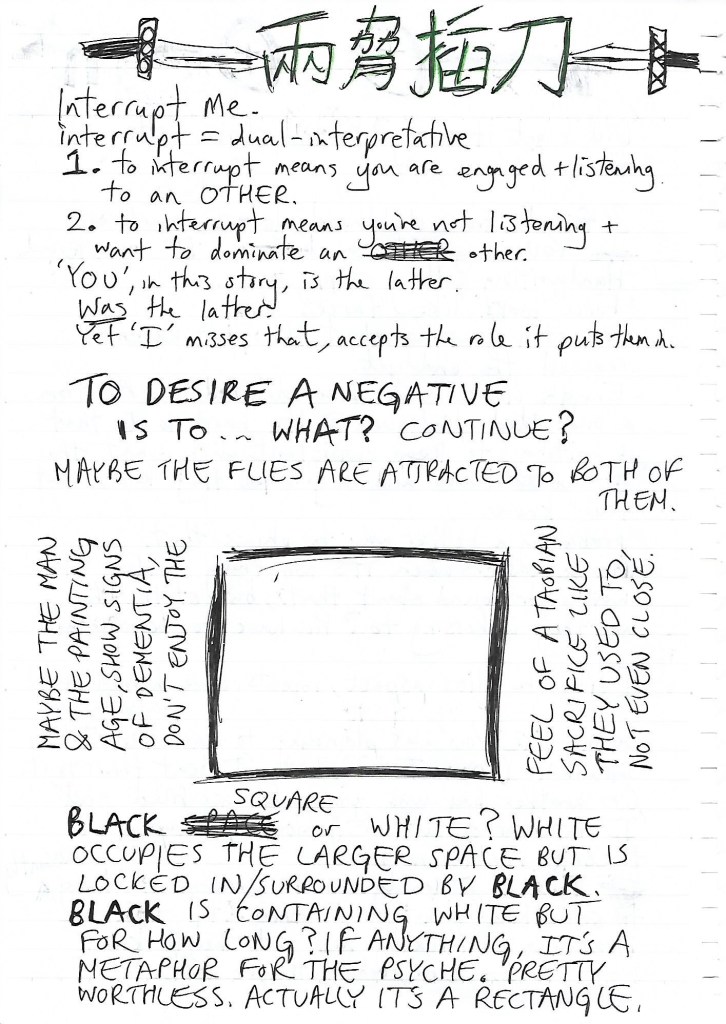 兩脅插刀
Interrupt Me.
interrupt = dual-interpretative
1. to interrupt means you are engaged + listening
to an OTHER.
2. to interrupt means you're not listening +
want to dominate an other.
'YOU', in this story, is the latter.
Was the latter.
Yet 'I' misses that, accepts the role it puts them in.
TO DESIRE A NEGATIVE
IS TO... WHAT? CONTINUE?
MAYBE THE FLIES ARE ATTRACTED TO BOTH OF
THEM.
MAYBE THE MAN
& THE PAINTING
AGE, SHOW SIGNS
OF DEMENTIA,
DON'T ENJOY THE
FEEL OF A TAOBIAN
SACRIFICE LIKE
THEY USED TO,
NOT EVEN CLOSE.
SQUARE
BLACK or WHITE? WHITE
OCCUPIES THE LARGER SPACE BUT IS
LOCKED IN/SURROUNDED BY BLACK.
BLACK IS CONTAINING WHITE BUT
FOR HOW LONG? IF ANYTHING, IT'S A
METAPHOR FOR THE PSYCHE. PRETTY
WORTHLESS. ACTUALLY IT'S A RECTANGLE.